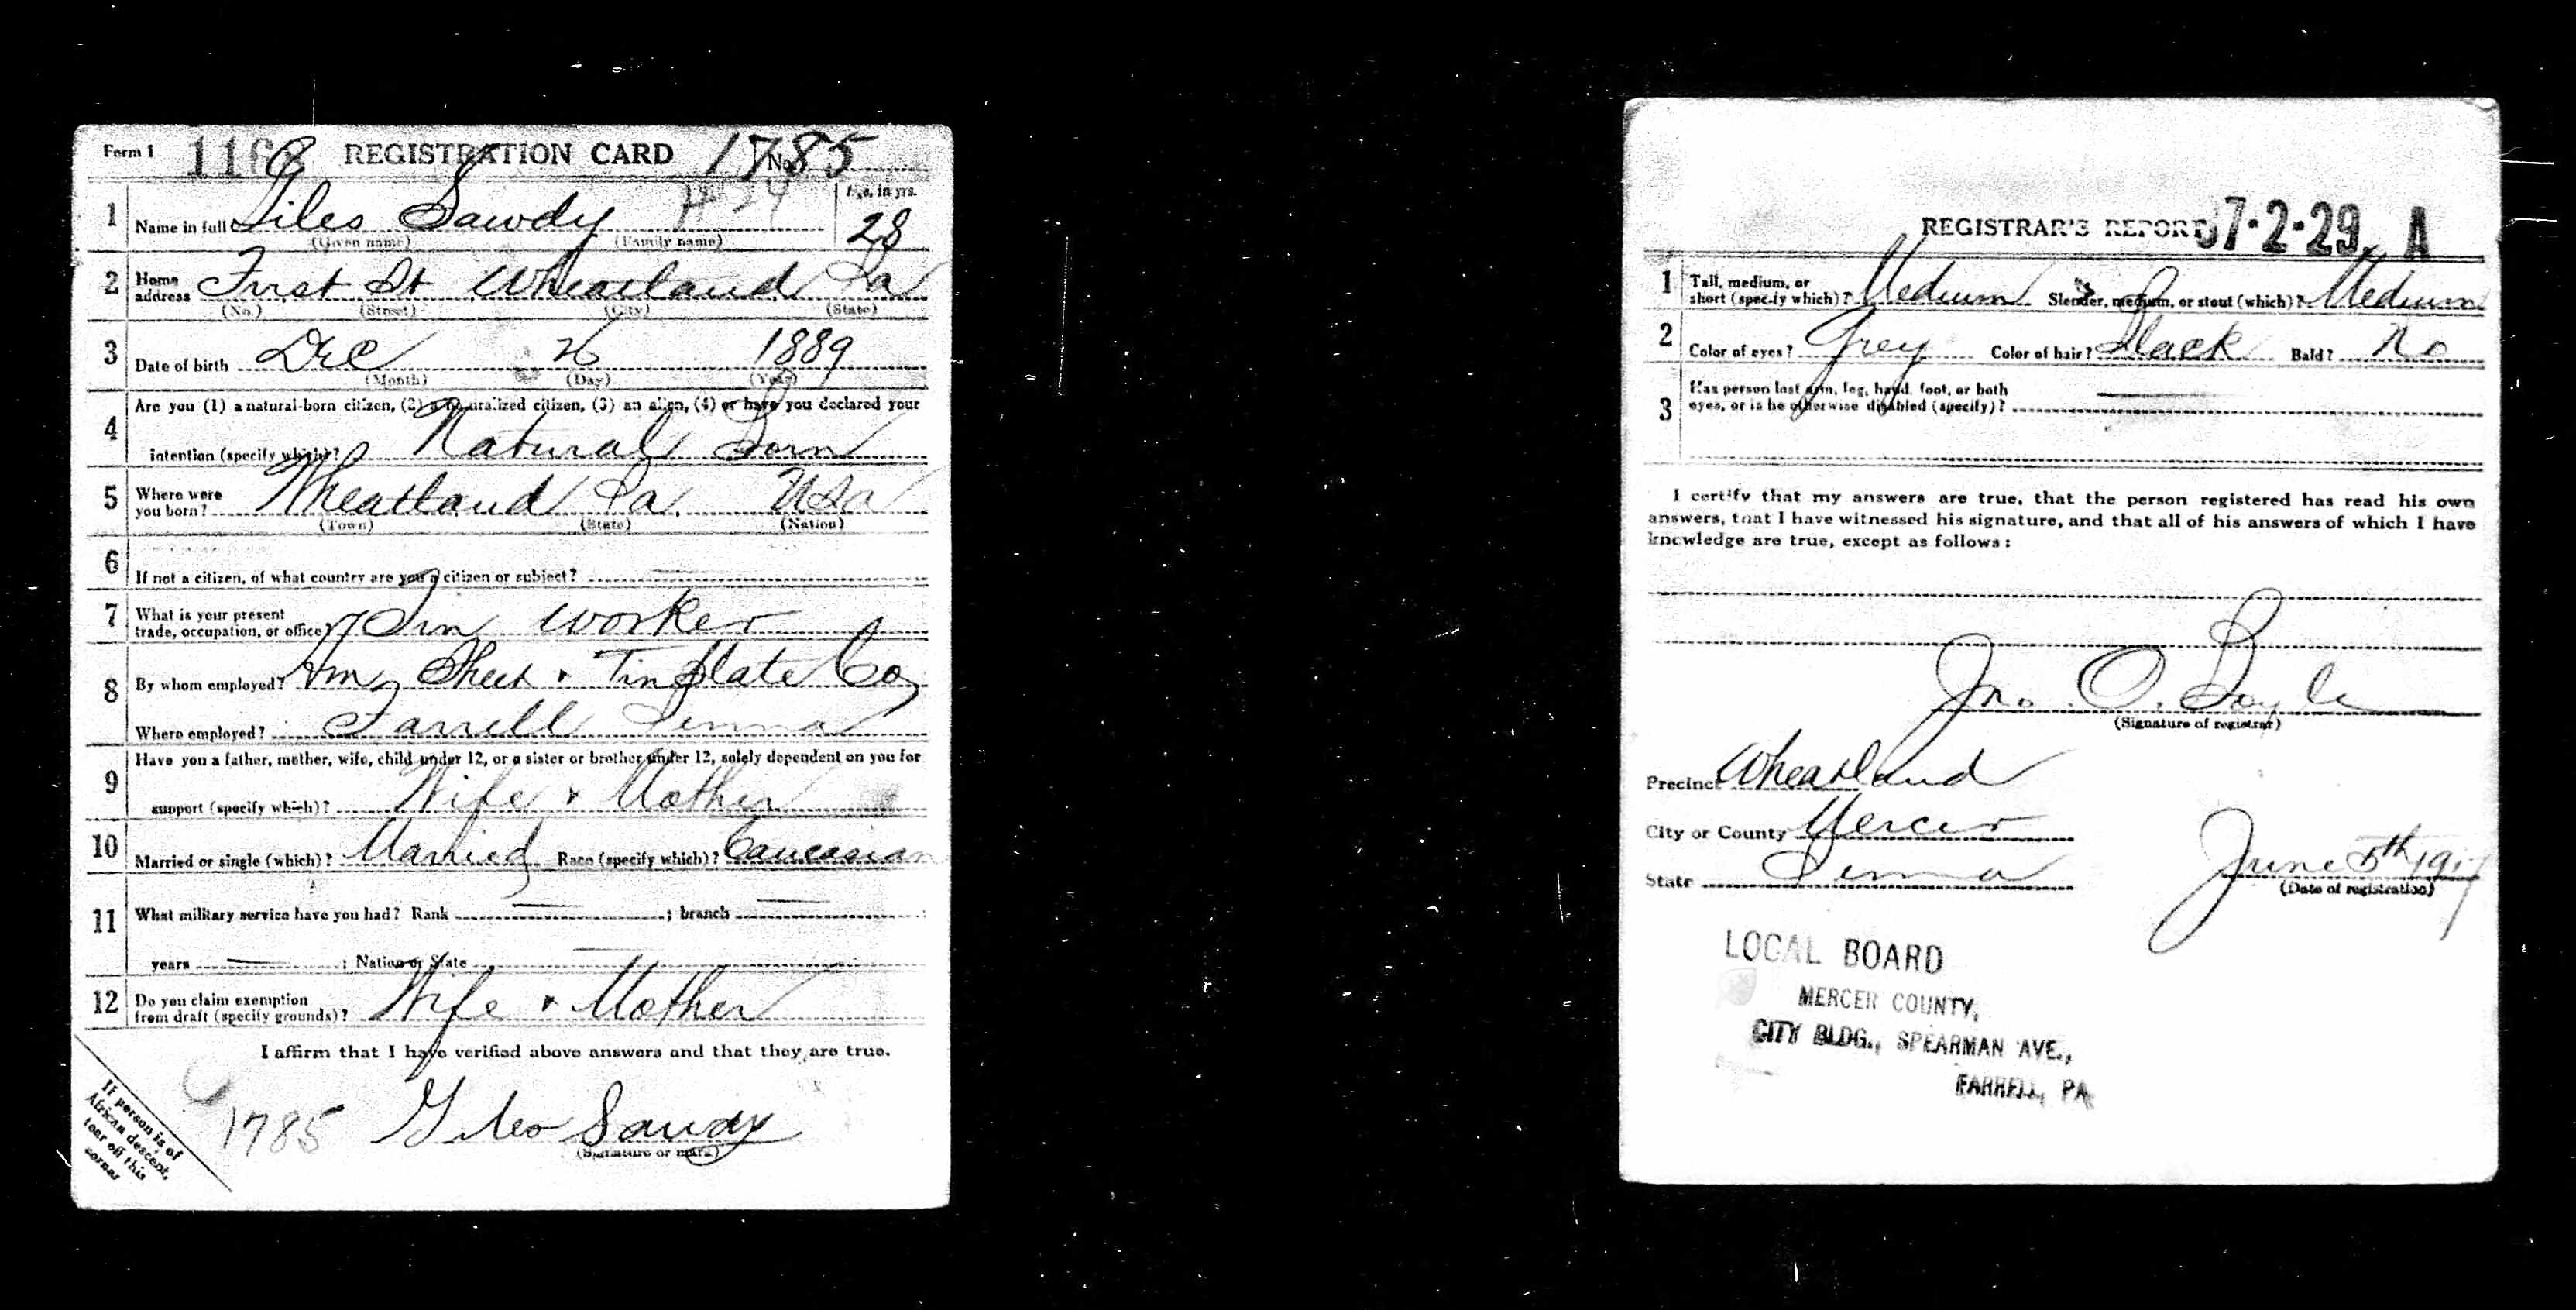 Form 1 1168 REGISTRATION CARD No. 1785
1 Name in full Giles Sawdy Age, in yrs. 28
(Given name) (Family name)
2 Home address First St Wheatland Pa
(No.) (Street) (City) (State)
3 Date of birth Dec 26 1889
(Month) (Day) (Year)
4 Are you (1) a natural-born citizen, (2) a naturalized citizen, (3) an alien, (4) or have you declared your
intention (specify which)? Natural Born
5 Where were you born? Wheatland Pa. USA
(Town) (State) (Nation)
6 If not a citizen, of what country are you a citizen or subject?
7 What is your present trade, occupation, or office? Tin Worker
8 By whom employed? Am Sheet + Tin Plate Co,
Where employed? Farrell Penna
9 Have you a father, mother, wife, child under 12, or a sister or brother under 12, solely dependent on you for
support (specify which)? Wife + Mother
10 Married or single (which)? Married Race (specify which)? Caucasian
11 What military service have you had? Rank ; branch
years ; Nation or State
12 Do you claim exemption from draft (specify grounds)? Wife + Mother
I affirm that I have verified above answers and that they are true.
1785 Giles Sawdy
(Signature or mark)
If person is of
African descent,
tear off this
corner
REGISTRAR'S REPORT 37-2-29. A
1 Tall, medium, or short (specify which)? Medium Slender, medium, or stout (which)? Medium
2 Color of eyes? Grey Color of hair? Black Bald? No
3 Has person lost arm, leg, hand, foot, or both
eyes, or is he otherwise disabled (specify)?
I certify that my answers are true, that the person registered has read his own
answers, that I have witnessed his signature, and that all of his answers of which I have
knowledge are true, except as follows:
Jno. O. Boyle
(Signature of registrar)
Precinct Wheatland
City or County Mercer
State Penna
June 5th 1917
(Date of registration)
LOCAL BOARD
MERCER COUNTY,
CITY BLDG., SPEARMAN AVE.,
FARRELL, PA.